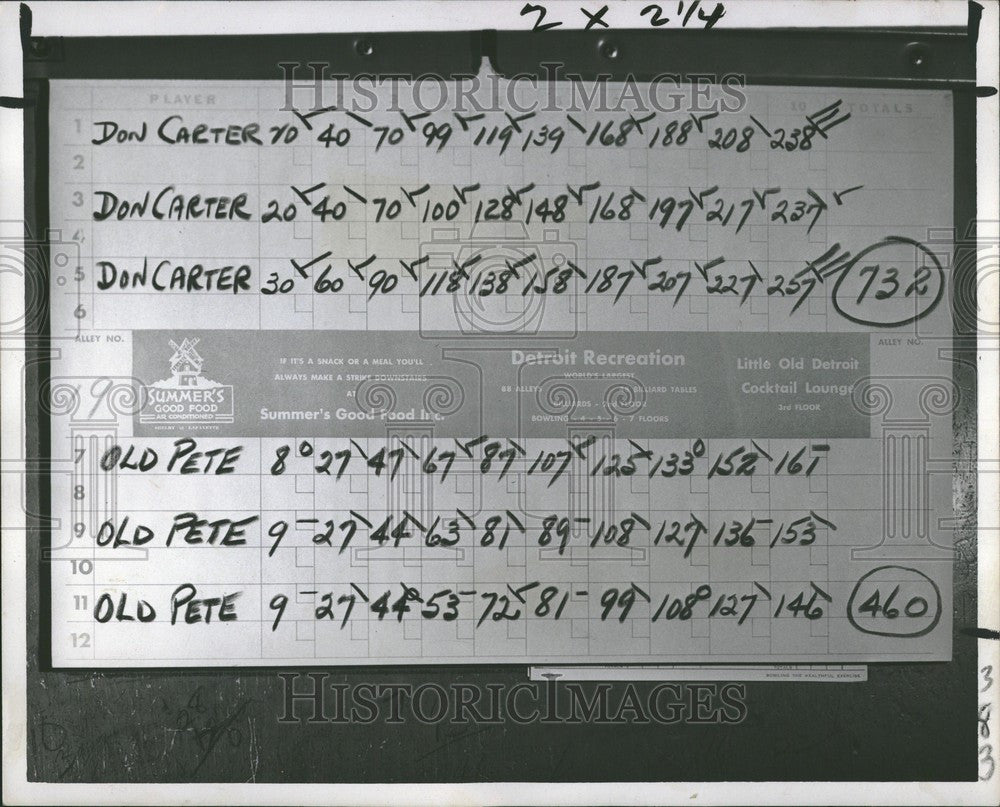 2 x 2 1/4
HISTORIC IMAGES
PLAYER 10 TOTALS
1 DON CARTER 20 40 70 99 119 139 168 188 208 238
2
3 DON CARTER 20 40 70 100 128 148 168 197 217 237
4
5 DON CARTER 30 60 90 118 138 158 187 207 227 257 732
6
ALLEY NO. ALLEY NO.
19
SUMMER'S
GOOD FOOD
AIR CONDITIONED
SHELBY at LAFAYETTE
IF IT'S A SNACK OR A MEAL YOU'LL
ALWAYS MAKE A STRIKE DOWNSTAIRS
AT
Summer's Good Food Inc.
Detroit Recreation
WORLD'S LARGEST
88 ALLEYS BILLIARD TABLES
BILLIARDS - 2nd FLOOR
BOWLING - 4 - 5 - 6 - 7 FLOORS
Little Old Detroit
Cocktail Lounge
3rd FLOOR
7 OLD PETE 8 27 47 67 87 107 125 133 152 161
8
9 OLD PETE 9 27 44 63 81 89 108 127 136 153
10
11 OLD PETE 9 27 44 53 72 81 99 108 127 146 460
12
BOWLING THE HEALTHFUL EXERCISE
HISTORIC IMAGES